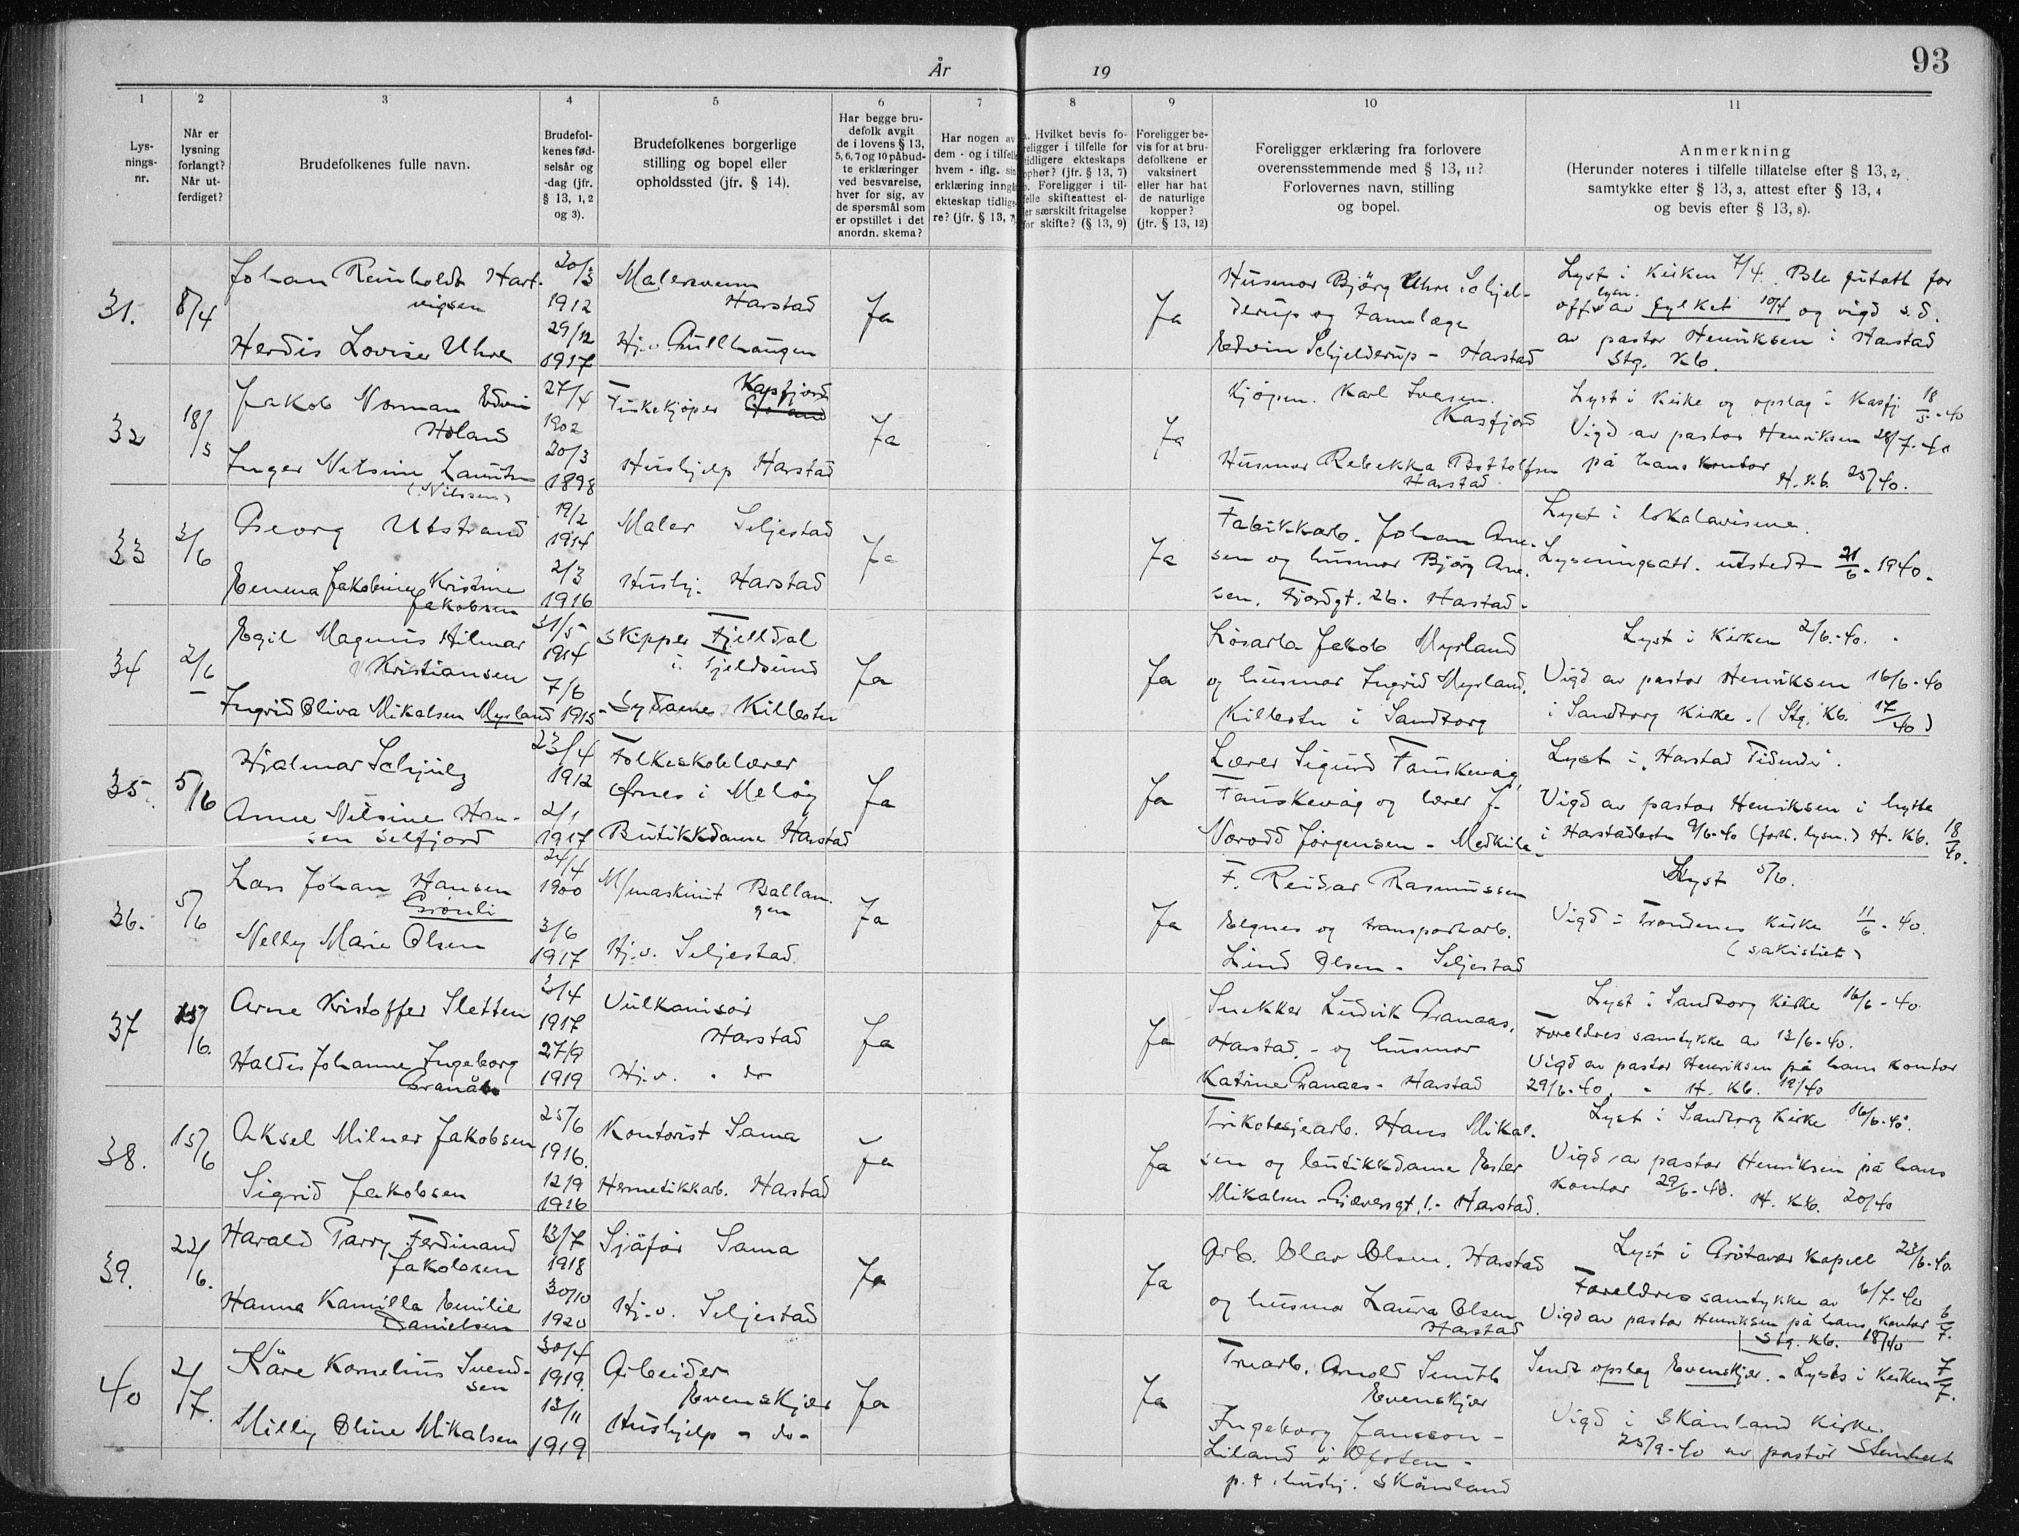 93
År 19
1 2 3 4 5 6 7 8 9 10 11
Lys-
nings-
nr.
Når er
lysning
forlangt?
Når ut-
ferdiget?
Brudefolkenes fulle navn.
Brudefol-
kenes fød-
selsår og
-dag (jfr.
§ 13, 1, 2
og 3).
Brudefolkenes borgerlige
stilling og bopel eller
opholdssted (jfr. § 14).
Har begge bru-
defolk avgit
de i lovens § 13,
5, 6, 7 og 10 påbud-
te erklæringer
ved besvarelse,
hver for sig, av
de spørsmål som
er opstillet i det
anordn. skema?
Har nogen av
dem - og i tilfelle
hvem - iflg. sin
erklæring inngå
ekteskap tidlige
re? (jfr. § 13, 7)
Hvilket bevis fo-
religger i tilfelle for
tidligere ekteskaps
ophør? (jfr. § 13, 7)
Foreligger i til-
felle skifteattest el-
ler særskilt fritagelse
for skifte? (§ 13, 9)
Foreligger be-
vis for at bru-
defolkene er
vaksinert
eller har hat
de naturlige
kopper?
(jfr. § 13, 12)
Foreligger erklæring fra forlovere
overensstemmende med § 13, 11?
Forlovernes navn, stilling
og bopel.
Anmerkning
(Herunder noteres i tilfelle tillatelse efter § 13, 2,
samtykke efter § 13, 3, attest efter § 13, 4
og bevis efter § 13, 8).
31. 8/4
Johan Reinholdt Hart-
vigsen
30/3
1912
Malersvenn
Harstad
Ja
Herdis Lovise Uhre
29/12
1917
Hj.v. Gullhaugen
Ja
Husmor Bjørg Uhre Schjel-
derup og tannlæge
Edvin Schjelderup - Harstad
Lyst i kirken 7/4. Ble fritatt for
off. lysn. av fylket 10/4 og vigd s.d.
av pastor Henriksen i Harstad
Stg. kb.
32 18/5
Jakob Norman Edvin
Holand
27/4
1902
Fiskekjøper Kasfjord
Ja
Inger Nilsine
(Nilssen)
20/3
1898
Hushjelp Harstad
Ja
Kjøpm. Karl Ivesen.
Kasfjord
Husmor Rebekka Bottolfsen
Harstad
Lyst i kirke og opslag i Kasfj. 18/5-40
Vigd av pastor Henriksen 28/7-40
på hans kontor
H. kb. 25/40.
33 3/6
Georg Utstrand
19/2
1914
Maler Seljestad
Ja
Emma Jakobine Kristine
Jakobsen
2/3
1916
Hushj. Harstad
Ja
Fabrikkarb. Johan Arne-
sen og husmor Bjørg Arne-
sen. Fjordgt. 26. Harstad.
Lyst i lokalavisene.
Lysningsatt. utstedt 21/6-1940.
34 2/6
Egil Magnus Hilmar
Kristiansen
31/5
1914
Skipper Fjelldal
i Tjeldsund
Ja
Ingrid Oliva Mikalsen Myrland
7/6
1915
Sydame. Killbotn
Ja
Løsarb. Jakob Myrland
og husmor Ingrid Myrland.
Killbotn i Sandtorg
Lyst i kirken 2/6.-40.
Vigd av pastor Henriksen 16/6-40
i Sandtorg kirke. (Stg. kb. 17/40)
35. 5/6
Hjalmar Schjulz
23/4
1912
Folkeskolelærer
Ørnes i Meløy
Ja
Anne Nilsine Han-
sen Selfjord
2/1
1917
Butikkdame Harstad
Ja
Lærer Sigurd Fauskevåg,
Fauskevåg og lærer J.
Norodd Jørgensen - Medkila
Lyst i "Harstad Tidende".
Vigd av pastor Henriksen i hytte
i Harstadbotn 9/6-40 (forh. lysn.) H. kb. 18/40.
36. 5/6
Lars Johan Hansen
Grønli
24/4
1900
M/maskinist Ballan-
gen
Ja
Nelly Marie Olsen
3/6
1917
Hj.v. Seljestad.
Ja
F. Reidar Rasmussen
Elgnes og transportarb.
Lind Olsen - Seljestad
Lyst 5/6.
Vigd i Trondenes kirke 11/6-40.
(sakristiet)
37 15/6.
Arne Kristoffer Sletten
3/4
1917
Vulkanisør
Harstad
Ja
Haldis Johanne Ingeborg
Granås
27/9
1919
Hj.v. - do
Ja
Snekker Ludvik Granaas,
Harstad. - og husmor
Katrine Granaas - Harstad
Lyst i Sandtorg kirke 16/6-40.
Foreldres samtykke av 13/6-40.
Vigd av pastor Henriksen på hans kontor
29/6-40. H. kb. 19/40
38. 15/6
Aksel Milner Jakobsen
25/6
1916.
Kontorist Sama
Ja
Sigrid Jakobsen
12/9
1916
Hermetikkarb. Harstad
Ja
Trikotasjearb. Hans Mikal-
sen og butikkdame Ester
Mikalsen - Gjæversgt. 1. - Harstad.
Lyst i Sandtorg kirke 16/6-40.
Vigd av pastor Henriksen på hans
kontor 29/6-40. H. kb. 20/40
39. 22/6.
Harald Parry Ferdinand
Jakobsen
13/7
1918
Sjåfør Sama
Ja
Hanna Kamilla Emilie
Danielsen
30/10
1920
Hj.v. Seljestad
Ja
Arb. Olav Olsen, Harstad
og husmor Laura Olsen
Harstad
Lyst i Grøtavær kapell 23/6-40.
Foreldres samtykke av 6/7-40
Vigd av pastor Henriksen på hans kontor 6/7.
Stg. kb. 18/40
40 2/7.
Kåre Kornelius Svend-
sen
30/4
1919.
Arbeider
Evenskjær
Ja
Milly Oline Mikalsen
13/11
1919
Hushjelp - do -
Ja
Truarb. Arnold Smith
Evenskjær
Ingeborg Jansson -
Liland i Ofoten -
p.t. hushj. Skånland
Sendt opslag Evenskjær. - Lyst i kirken 7/7.
Vigd i Skånland kirke.
25/9-40 av pastor